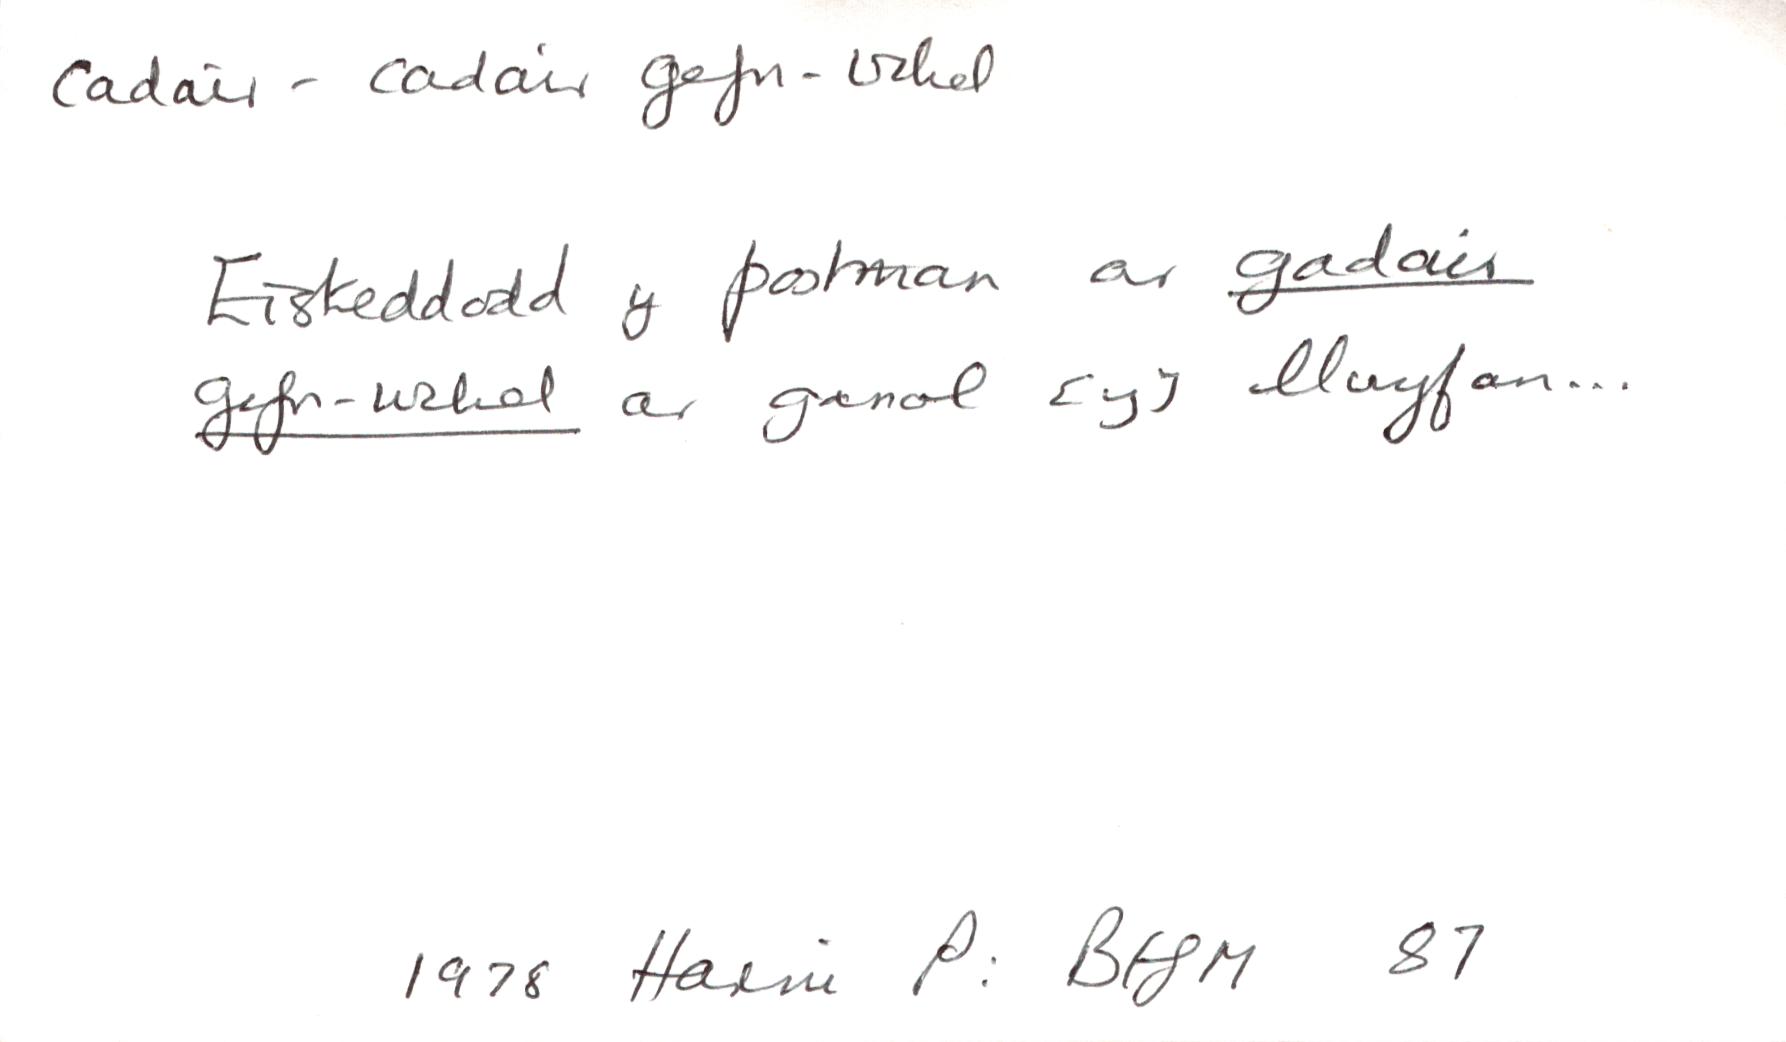 Cadair - cadair gefn-uchel
Eisteddodd y postman ar gadair
gefn-uchel ar ganol [y] llwyfan...
1978 Harri P: BHGM 87